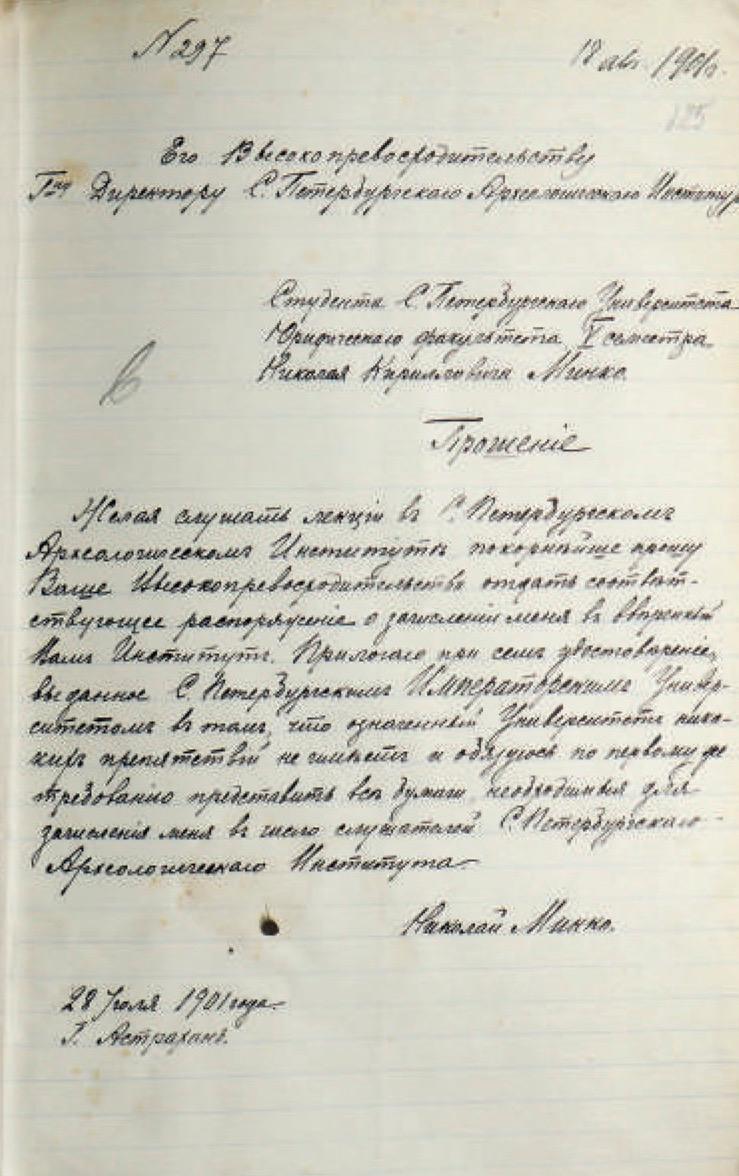 N 297
18 авг. 1901 г.
125
Его Высокопревосходительству
Гну Директору С. Петербургскаго Археологическаго Института
Студента С. Петербургскаго Университета
Юридическаго факультета V семестра
Николая Кирилловича Минко.
Прошеніе
Желая слушать лекціи въ С. Петербургскомъ
Археологическомъ Институтѣ покорнѣйше прошу
Ваше Высокопревосходительство отдать соотвѣт-
ствующее распоряженіе о зачисленіи меня въ ввѣренный
Вамъ Институтъ. Прилогаю при семъ удостовѣреніе,
выданное С. Петербургскимъ Императорскимъ Универ-
ситетомъ въ томъ, что означенный Университетъ ника-
кихъ препятствій не имѣетъ и обязуюсь по первому же
требованію представить всѣ бумаги, необходимыя для
зачисленія меня въ число слушателей С. Петербургскаго
Археологическаго Института.
Николай Минко.
28 Іюля 1901 года.
Г. Астрахань.